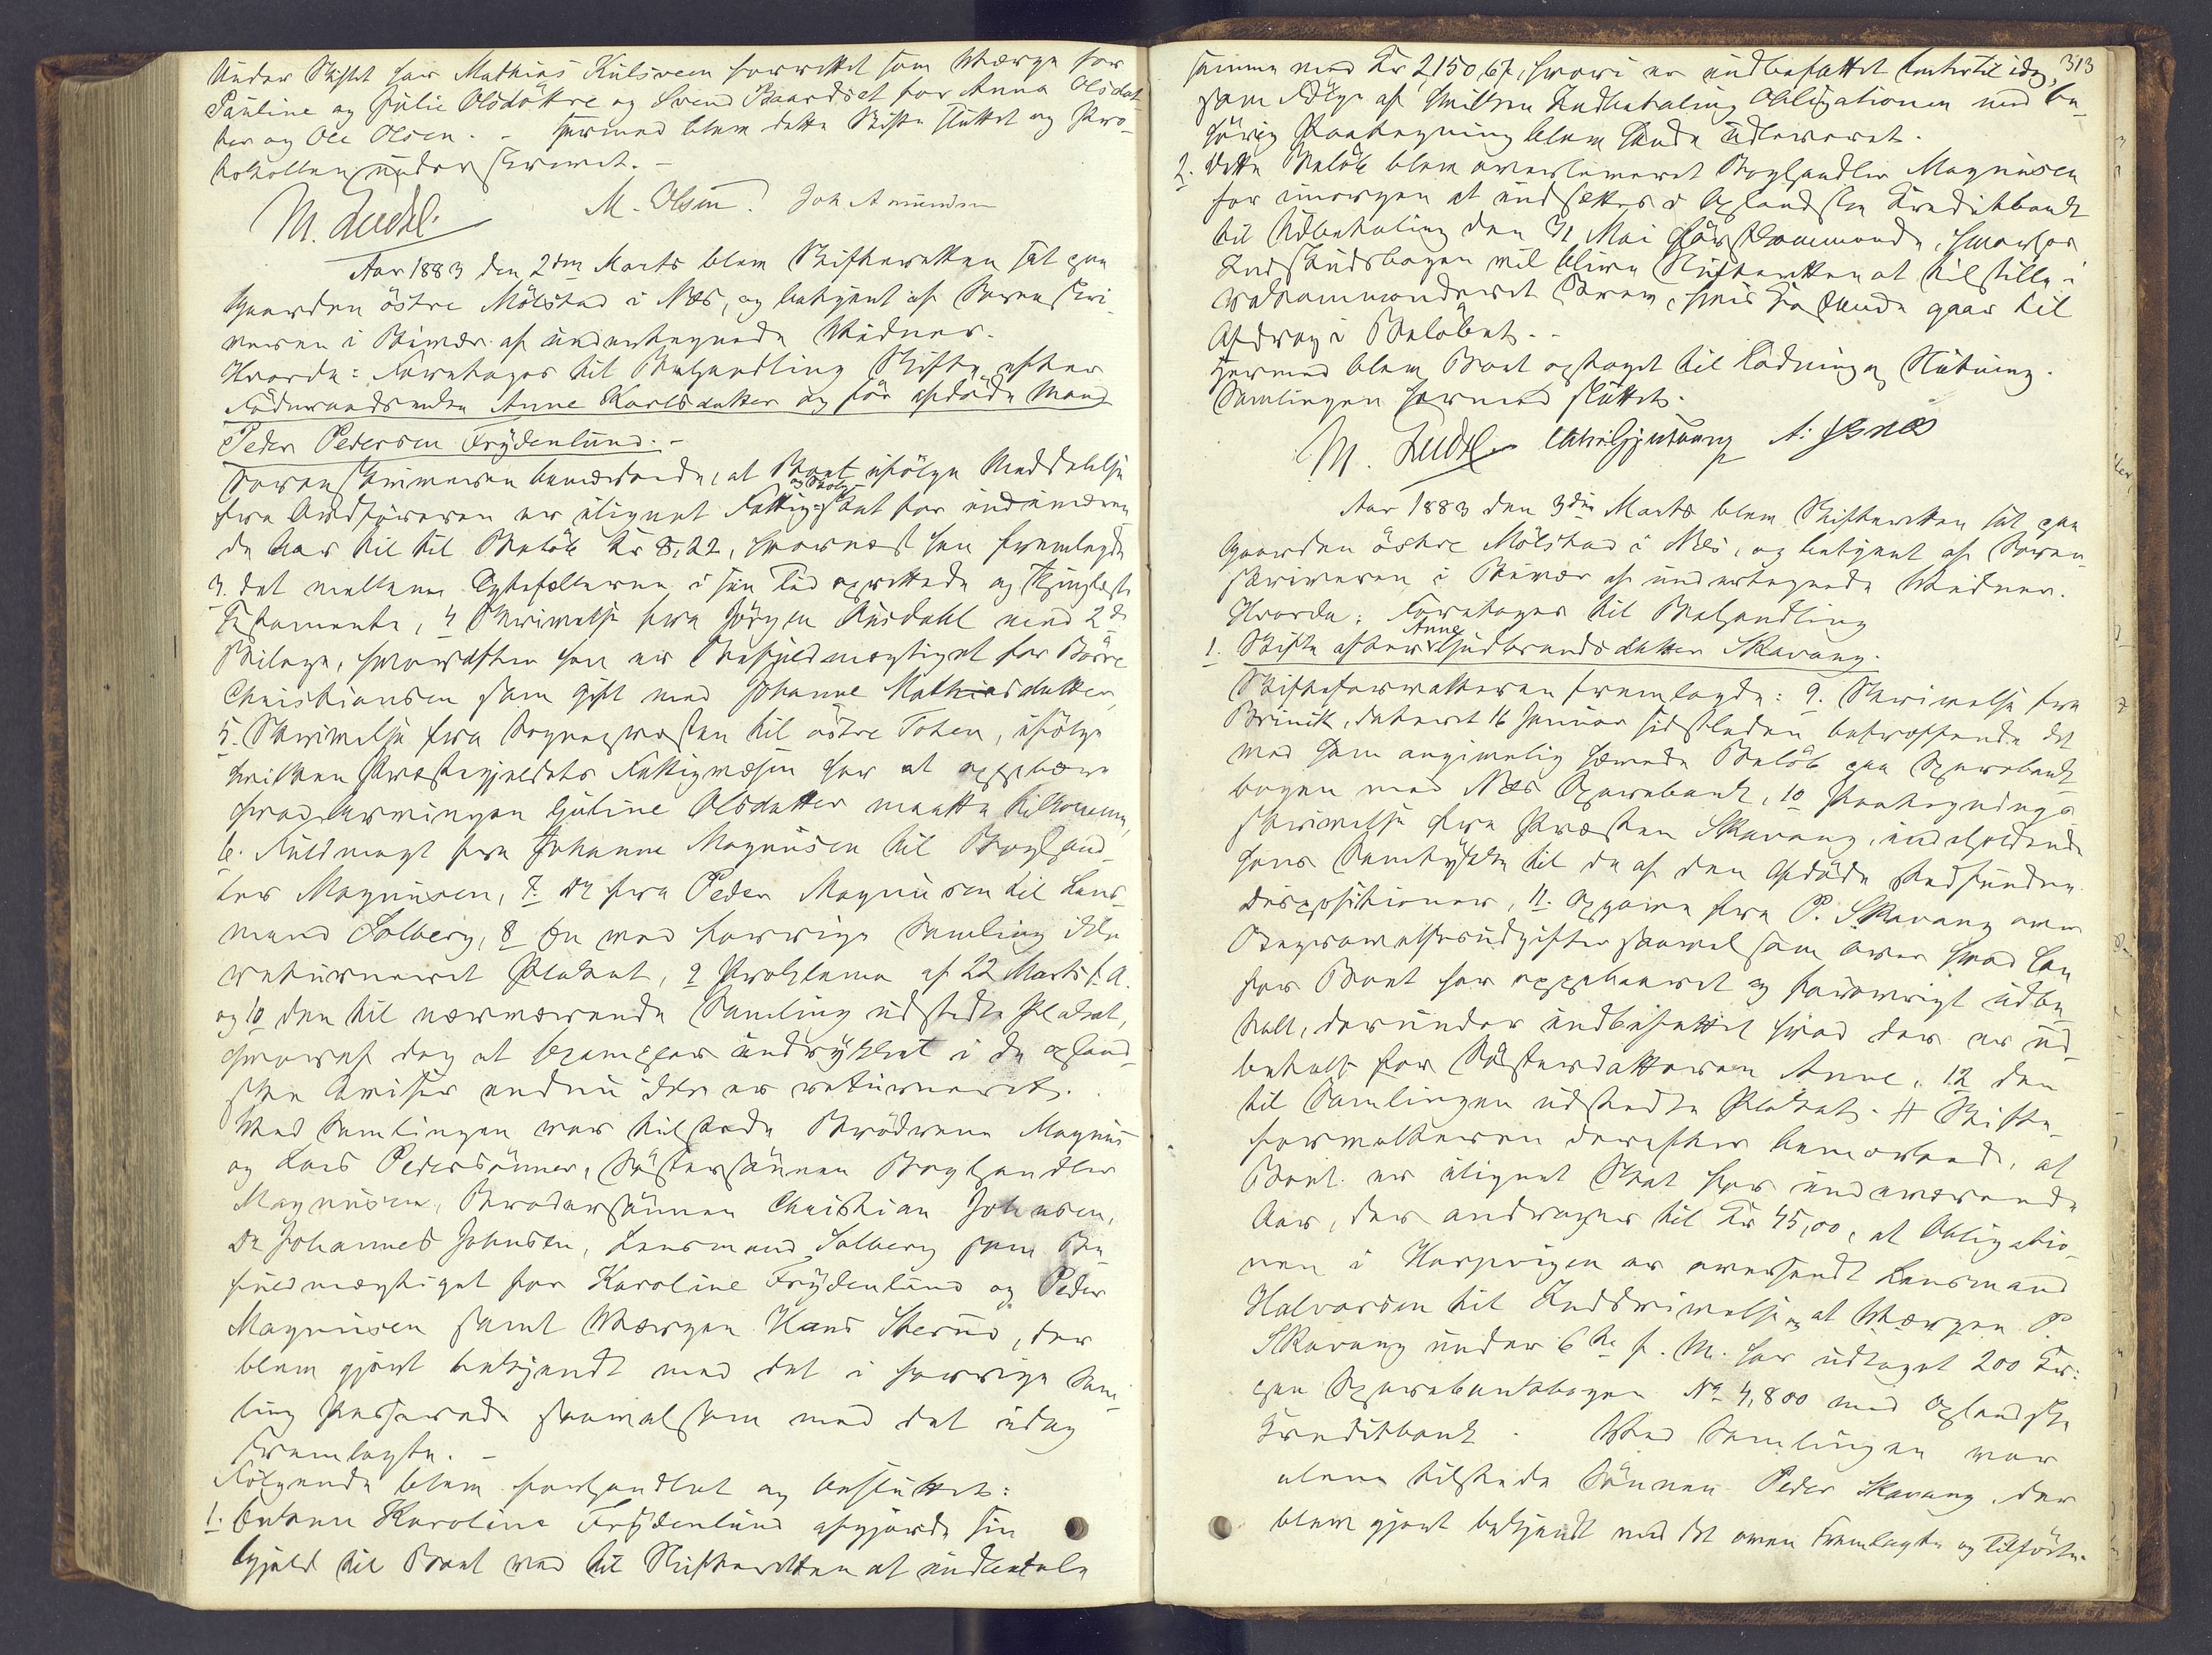 Under Skiftet har Mathias Kulsveen forrettet som Værge for
Pauline og Julie Olsdøttre og Svend Baardset for Anna Olsdat-
ter og Ole Olsen. - Hermed blev dette Skifte sluttet og Pro-
tokollen underskrevet. -
M. Olsen. Joh Amundsen
Aar 1883 den 2den Marts blev Skifteretten sat paa
Gaarden östre Mölstad i Næs, og betjent af Sorenskri-
veren i Overvær af undertegnede Vidner.
Hvorda: Foretoges til Behandling Skifte efter
Föderaadsenken Anne Karlsdatter og før afdöde Mand
Peder Pedersen Frydenlund. -
Sorenskriveren bemærkede, at Boet ifölge Meddelelse
fra Ordföreren er ilignet Fattig- og Skole-skat for indeværen-
de Aar til et Belöb Kr 8,22, hvornæst han fremlagde
3. det mellem Ægtefællerne i sin Tid oprettede og thinglæste
Testamente, 4 Skrivelse fra Jörgen Ausdahl med 2de
Bilage, hvorefter han er befuldmægtiget for Börre
Christiansen som gift med Johanne Mathiasdatter,
5. Skrivelse fra Sognepresten til östre Toten, ifölge
hvilken Prestegjeldets Fattigvæsen har at oppebære
hvad Arvingen Gubine Olsdatter maatte tilkomme,
6. Fuldmagt fra Johanne Magnusen til Boghand-
ler Magnusen, 7. Do fra Peder Magnusen til Lens-
mand Solberg, 8 En ved forrige Samling ikke
returneret Plakat, 9 Proklama af 22 Marts f. A.
og 10 den til nærværende Samling udstedte Plakat,
hvoraf dog et Exemplar indrykket i de opland-
ske Aviser endnu ikke er returneret.
Ved Samlingen var tilstede Brödrene Magnus
og Lars Pederssönner, Söstersönnen Boghandler
Magnusen, Brodersönnen Christian Johnsen,
Do Johannes Johnsen, Lensmand Solberg som Be-
fuldmægtiget for Karoline Frydenlund og Peder
Magnusen samt Værgen Hans Sterud, der
blev gjort bekjendt med det i forrige Sam-
ling Passerede saavelsom med det idag
Fremlagte. -
Fölgende blev forhandlet og besluttet:
1. Enken Karoline Frydenlund afgjorde sin
Gjeld til Boet ved til Skifteretten at indbetale
313
samme med Kr 2150,67, hvori er indbefattet Renter til idag,
som Fölge af hvilken Indbetaling Obligationen med be-
hörig Paategning blev hende udleveret.
2. Dette Belöb blev overleveret Boghandler Magnusen
for imorgen at indsættes i Oplandske Kreditbank
til Udbetaling den 31 Mai förstkommende, hvorfor
Indskudsbogen vil blive Skifteretten at tilstille i
rekommanderet Brev, hvis Porto gaar til
Afdrag i Belöbet. -
Hermed blev Boet optaget til Lodning og Slutning.
Samlingen hermed sluttet.
Aar 1883 den 3die Marts blev Skifteretten sat paa
Gaarden östre Mölstad i Næs, og betjent af Soren-
skriveren i Overvær af undertegnede Vidner.
Hvorda: Foretoges til Behandling
1. Skifte efter Anne Gudbrandsdatter Skavang.
Skifteforvalteren fremlagde: 9. Skrivelse fra
dateret 16 Januar sidstleden betræffende det
ved ham angivelig hævede Belöb paa Sparebank-
bogen med Næs Sparebank, 10 Paategnings-
skrivelse fra Presten Skavang, indeholdende
hans Samtykke til de af den Afdöde stedfundne
Dispositioner, 11. Opgave fra P. Skavang over
Begravelsesudgifter saavelsom over hvad han
for Boet har oppebaaret og forövrigt udbe-
talt, derunder indbefattet hvad der er ud-
betalt for Sösterdatteren Anne, 12 den
til Samlingen udstedte Plakat. Skifte-
forvalteren derefter bemærkede, at
Boet er ilignet Skat for indeværende
Aar, der andrager til Kr 45,00, at Obligatio-
nen i Horpvigen er oversendt Lensmand
Halvorsen til Inddrivelse og at Værgen P.
Skavang under 6te f. M. har udtaget 200 Kr.
paa Sparebankbogen No 4,800 med Oplandske
Kreditbank. Ved Samlingen var
alene tilstede Sönnen Peder Skavang, der
blev gjort bekjendt med det oven Fremlagte og Tilförte.